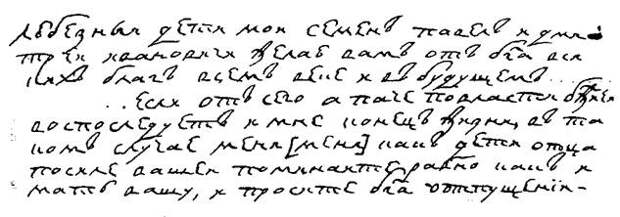 Любезныи дети мои Семенъ Павелъ и Дми-
трей Ивановичи желаю вамъ отъ бга вся
кихъ благъ всемъ веце и въ будущемъ ....
..если отъ сего а паче по власти бжией
воспоследуетъ и мне конецъ жизни, въ та
комъ случае меня [меня] какъ дети отца
посиле вашей поминайте равно какъ и
мать вашу, и просите бга о отпущении-